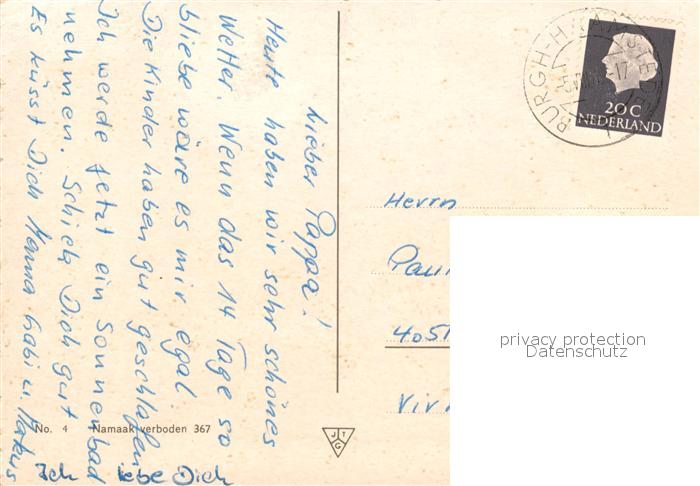 Lieber Pappa!
Heute haben wir sehr schönes
Wetter. Wenn das 14 Tage so
bliebe wäre es mir egal
Die Kinder haben gut geschlafen
Ich werde jetzt ein Sonnenbad
nehmen. Schieb Dich gut
Es küsst Dich Mama Gabi u. Markus
Ich liebe Dich
No. 4 Namaak verboden 367
JTG
BURGH-HAAMSTEDE
20 C
NEDERLAND
Herrn
Paul
4051
Vir
privacy protection
Datenschutz